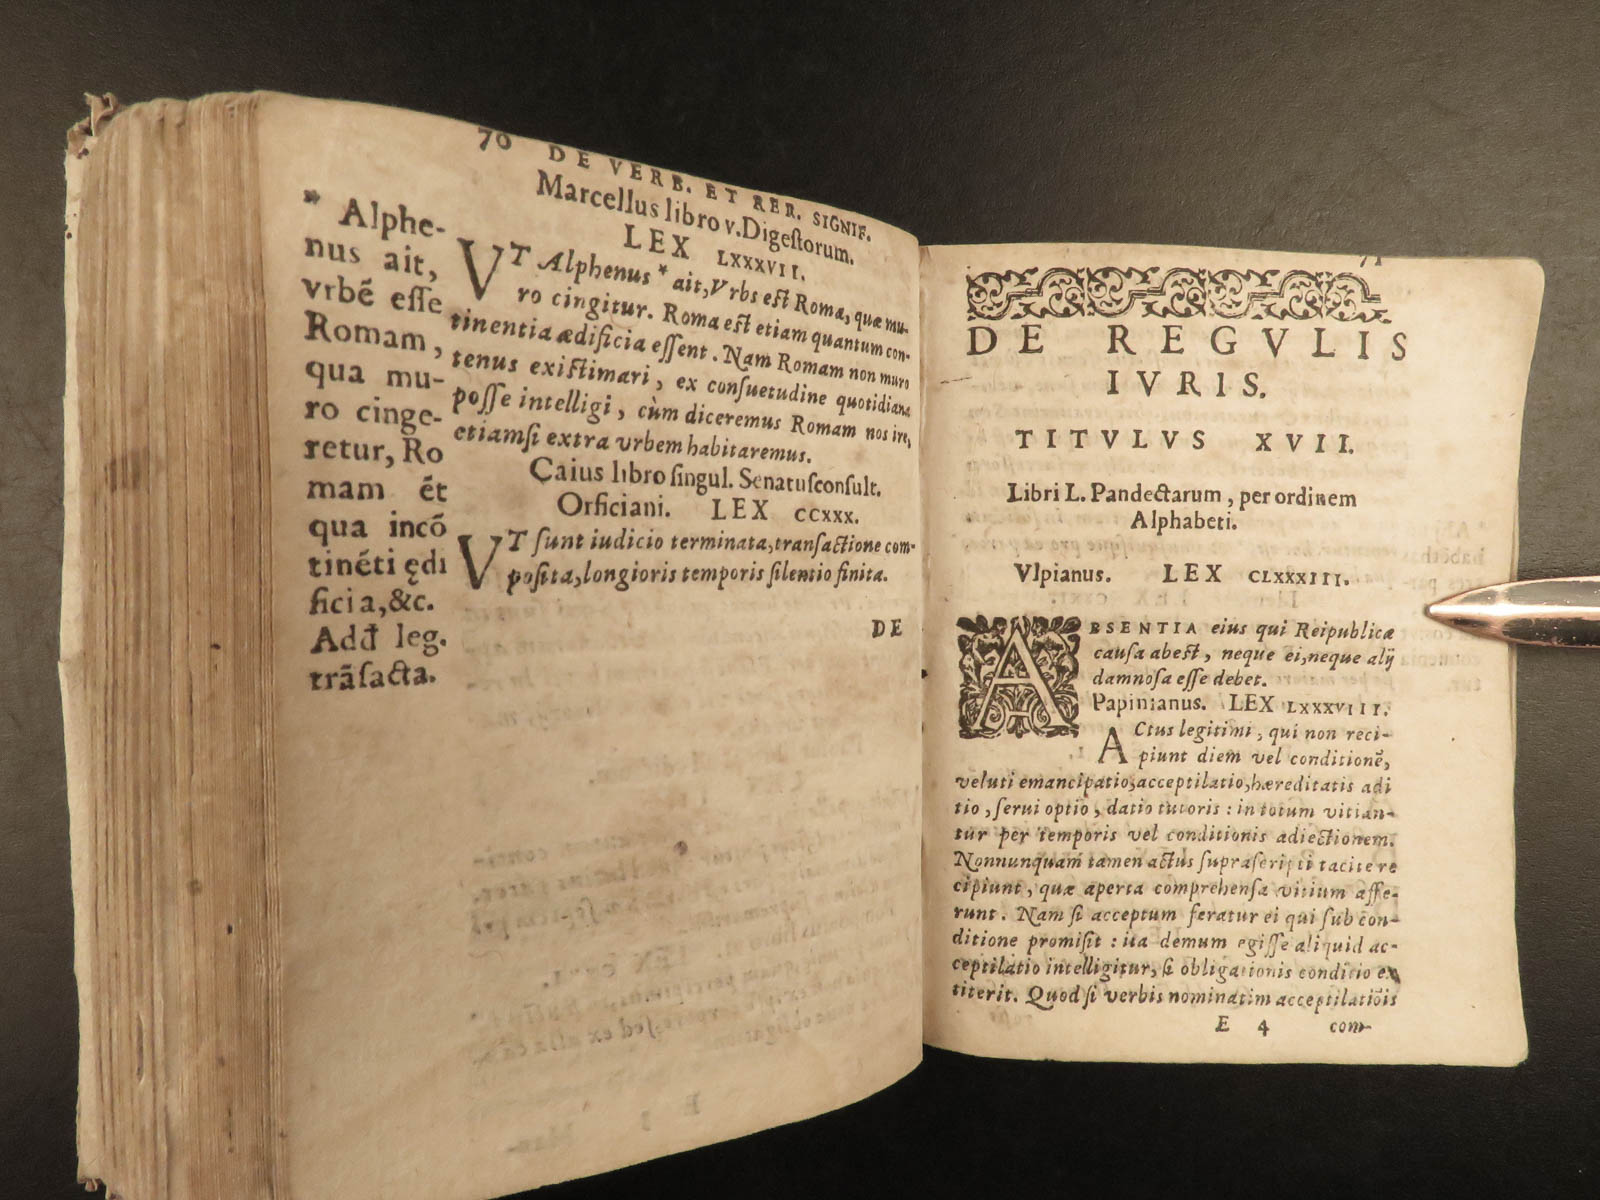 70 DE VERB. ET RER. SIGNIF.
Marcellus libro v. Digeſtorum.
LEX LXXXVII.
VT Alphenus * ait, Vrbs eſt Roma, quæ mu-
ro cingitur. Roma eſt etiam quantum con-
tinentia ædificia eſſent. Nam Romam non muro
tenus exiſtimari, ex conſuetudine quotidiana
poſſe intelligi, cùm diceremus Romam nos ire,
etiamſi extra vrbem habitaremus.
Caius libro ſingul. Senatuſconſult.
Orficiani. LEX CCXXX.
VT ſunt iudicio terminata, tranſactione com-
poſita, longioris temporis ſilentio finita.
DE
* Alphe-
nus ait,
vrbẽ eſſe
Romam,
qua mu-
ro cinge-
retur, Ro
mam ẽt
qua incõ
tinẽti ędi
ficia, &c.
Add leg.
trãſacta.
71
DE REGVLIS
IVRIS.
TITVLVS XVII.
Libri L. Pandectarum, per ordinem
Alphabeti.
Vlpianus. LEX CLXXXIII.
ABSENTIA eius qui Reipublicæ
cauſa abeſt, neque ei, neque alij
damnoſa eſſe debet.
Papinianus. LEX LXXXVIII.
ACtus legitimi, qui non reci-
piunt diem vel conditionẽ,
veluti emancipatio, acceptilatio, hæreditatis adi
tio, ſerui optio, datio tutoris: in totum vitian-
tur per temporis vel conditionis adiectionem.
Nonnunquam tamen actus ſupraſcripti tacite re
cipiunt, quæ aperta comprehenſa vitium affe-
runt. Nam ſi acceptum feratur ei qui ſub con-
ditione promiſit: ita demum egiſſe aliquid ac-
ceptilatio intelligitur, ſi obligationis conditio ex
titerit. Quod ſi verbis nominatim acceptilatiõis
E 4 com-